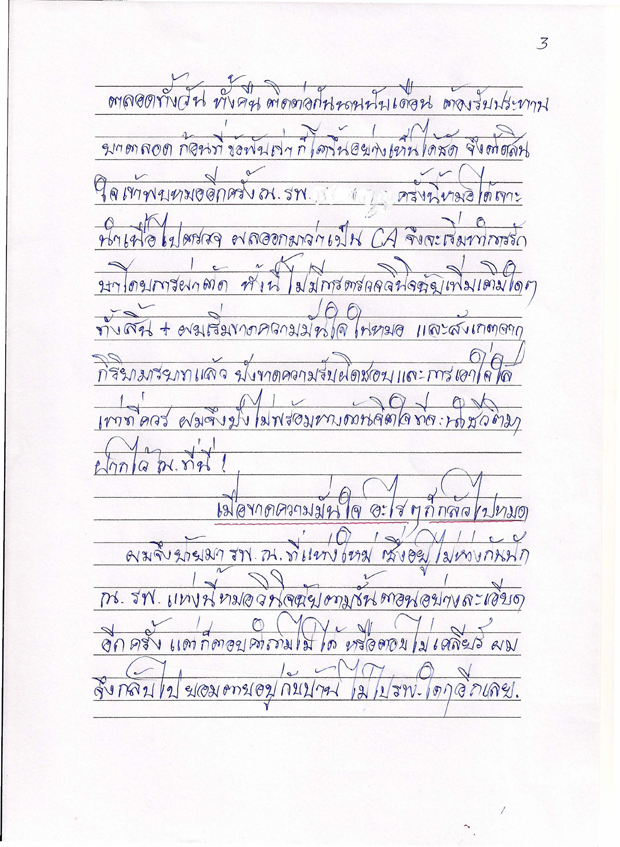 3
ตลอดทั้งวัน ทั้งคืน ติดต่อกันนานนับเดือน ต้องรับประทาน
ยาตลอด ก้อนที่ข้อพับเข่าก็โตขึ้นอย่างเห็นได้ชัด จึงตัดสิน
ใจเข้าพบหมออีกครั้ง ณ. รพ. ครั้งนี้หมอได้เจาะ
นำเนื้อไปตรวจ ผลออกมาว่าเป็น CA จึงจะเริ่มทำการรัก
ษาโดยการผ่าตัด ทั้งนี้ ไม่มีการตรวจวินิจฉัยเพิ่มเติมใดๆ
ทั้งสิ้น + ผมเริ่มขาดความมั่นใจในหมอ และสังเกตจาก
กิริยามารยาทแล้ว ยังขาดความรับผิดชอบและการเอาใจใส่
เท่าที่ควร ผมจึงยังไม่พร้อมทางด้านจิตใจที่จะนำชีวิตมา
ฝากไว้ ณ. ที่นี่ !
เมื่อขาดความมั่นใจ อะไรๆ ก็กลัวไปหมด
ผมจึงย้ายมา รพ. ณ. ที่แห่งใหม่ ซึ่งอยู่ไม่ห่างกันนัก
ณ. รพ. แห่งนี้หมอวินิจฉัยตามขั้นตอนอย่างละเอียด
อีกครั้ง แต่ก็ตอบคำถามไม่ได้ หรือตอบไม่เคลียร์ ผม
จึงกลับไปยอมตายอยู่กับบ้าน ไม่ไปรพ.ใดๆอีกเลย.